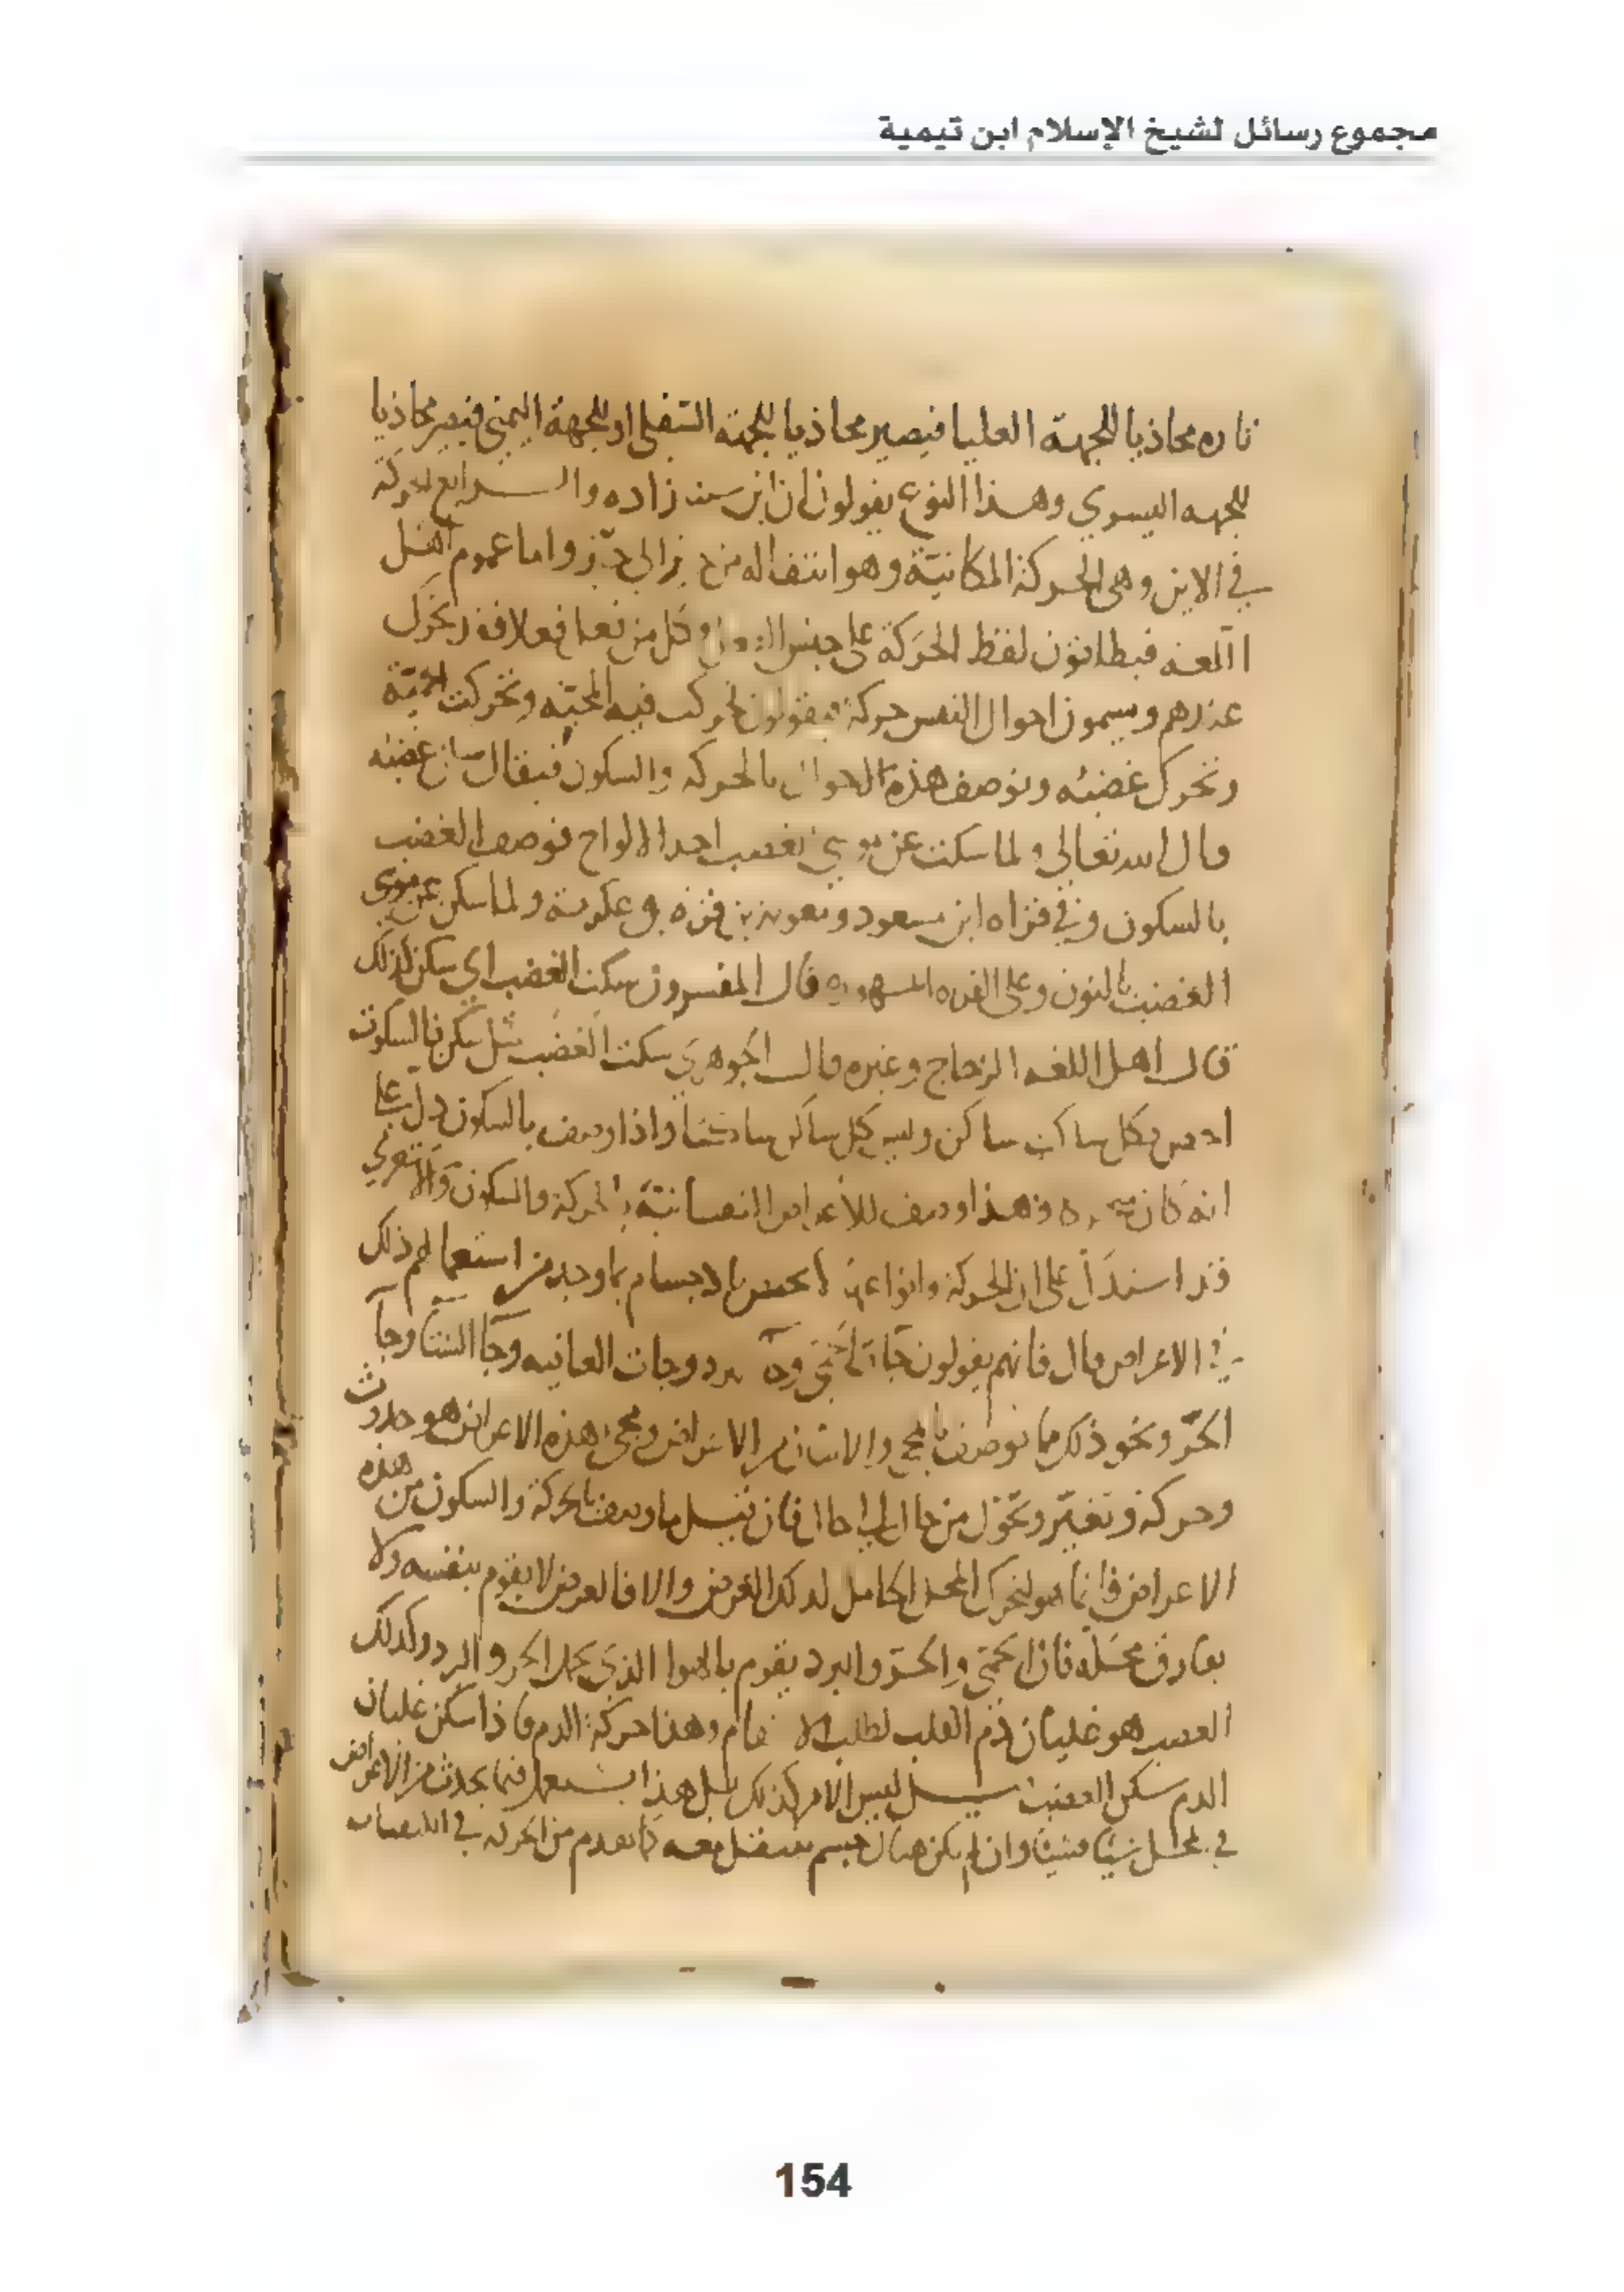 مجموع رسائل لشيخ الإسلام ابن تيمية
تاره محاذيا للجهة العليا فيصير محاذيا للجهة السفلى او للجهة اليمنى فيصير محاذيا
للجهه اليسرى وهذا النوع يقولون ان ابن سينا زاده والرابع الحركة
في الاين وهي الحركة المكانية وهو انتقاله من حيز الى حيز واما عموم اهل
اللغه فيطلقون لفظ الحركة على جنس الفعل وكل من فعل فعلا فقد تحرك
عندهم ويسمون احوال النفس حركة فيقولون تحركت فيه المحبه وتحركت الحمية
وتحرك غضبه وتوصف هذه الاحوال بالحركه والسكون فيقال سكن غضبه
قال الله تعالى ولما سكت عن موسى الغضب اخذ الالواح فوصف الغضب
بالسكوت وفي قراه ابن مسعود ومعوية بن قرة وعكرمة ولما سكن عن موسى
الغضب بالنون وعلى القراه المشهوره قال المفسرون سكت الغضب اي سكن وكذلك
قال اهل اللغه الزجاج وغيره قال الجوهري سكت الغضب مثل سكن فالسكوت
اخص فكل ساكت ساكن وليس كل ساكن ساكتا واذا وصف بالسكون دل على
انه كان وهذا وصف للاعراض النفسانية بالحركة والسكون والاشعري
قد استدل على ان الحركة وانواعها لا تختص بالاجسام بما وجد من استعمالهم ذلك
في الاعراض قال فانهم يقولون جات الحمى وجا البرد وجات العافيه وجا الشتا وجا
الحر ونحو ذلك مما يوصف بالمجي والاتيان من الاعراض ومجي هذه الاعراض هو حدوث
وحركة وتغير وتحول من حال الى حال فان قيل ما وصف بالحركة والسكون من هذه
الاعراض فانما هو لتحرك المحل الحامل لذلك العرض والا فالعرض لا يقوم بنفسه ولا
يفارق محله فان الحمى والحر والبرد يقوم بالهوا الذي يحمل الحر والبرد وكذلك
الغضب هو غليان دم القلب لطلب الانتقام وهذا حركة الدم فاذا سكن غليان
الدم سكن الغضب قيل ليس الامر كذلك بل هذا يستعمل فيما يحدث من الاعراض
في المحل شيا فشيا وان لم يكن هناك جسم ينتقل معه كما تقدم من الحركه في الكيفيات
154